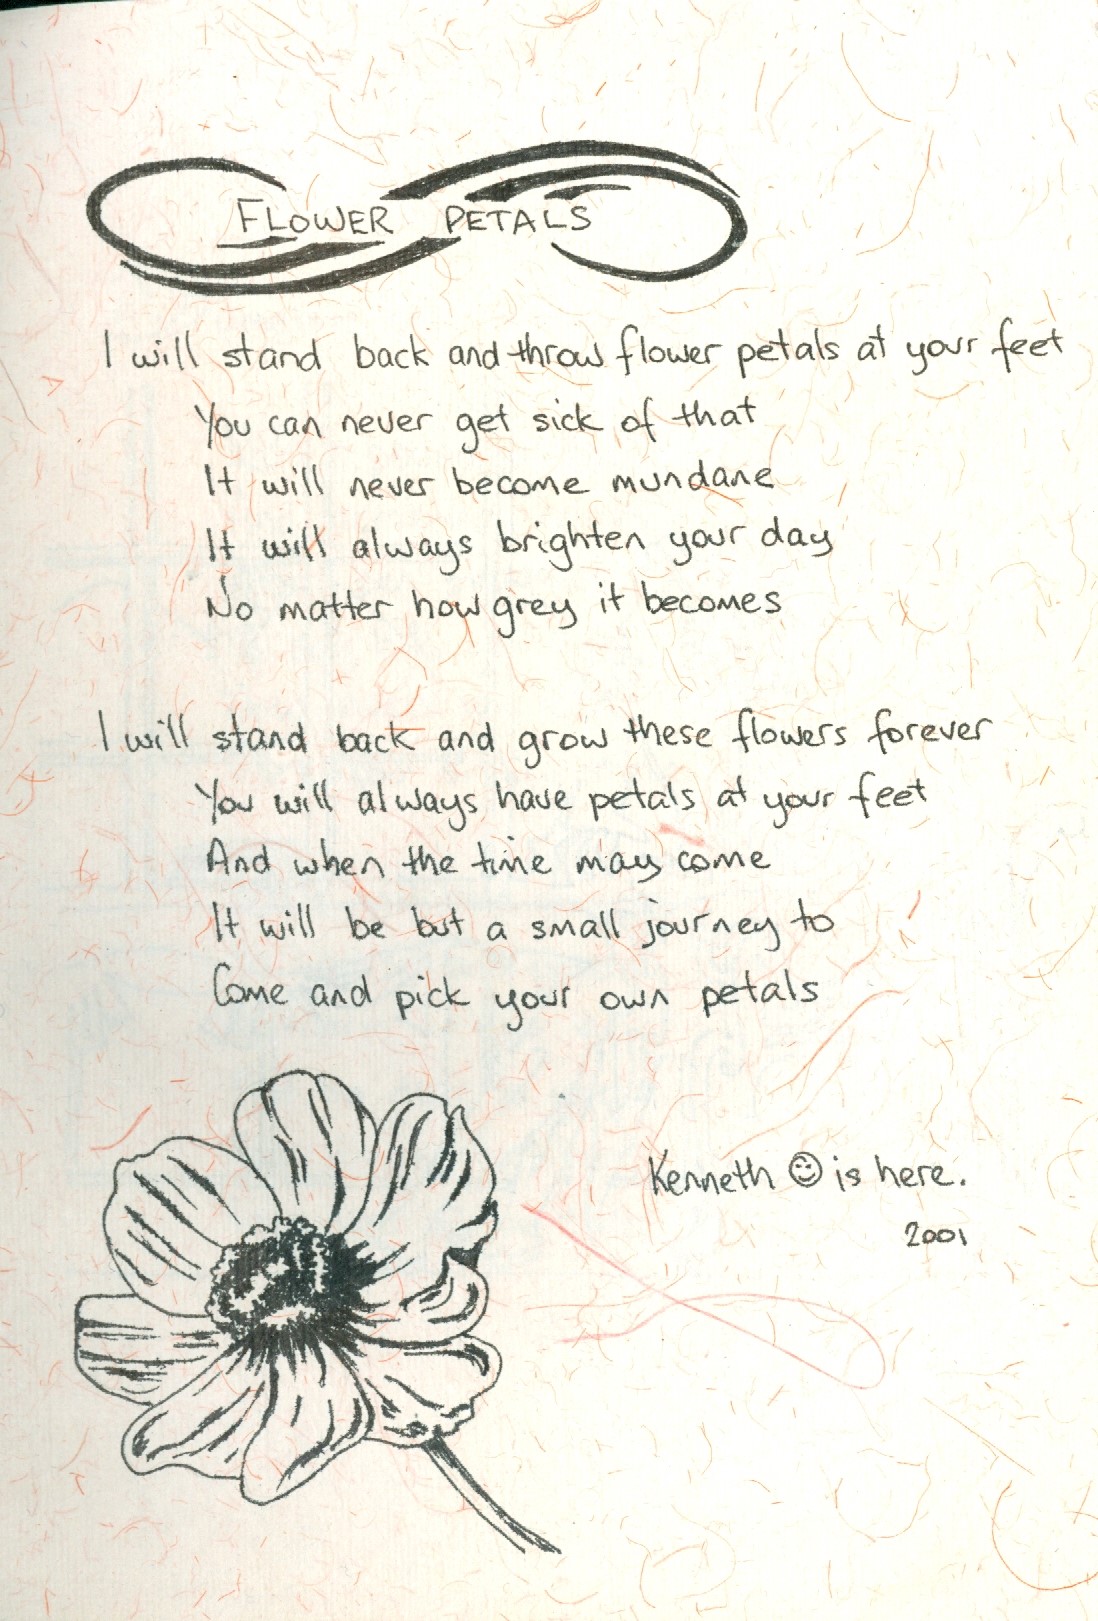 FLOWER PETALS
I will stand back and throw flower petals at your feet
You can never get sick of that
It will never become mundane
It will always brighten your day
No matter how grey it becomes
I will stand back and grow these flowers forever
You will always have petals at your feet
And when the time may come
It will be but a small journey to
Come and pick your own petals
Kenneth ☺ is here.
2001